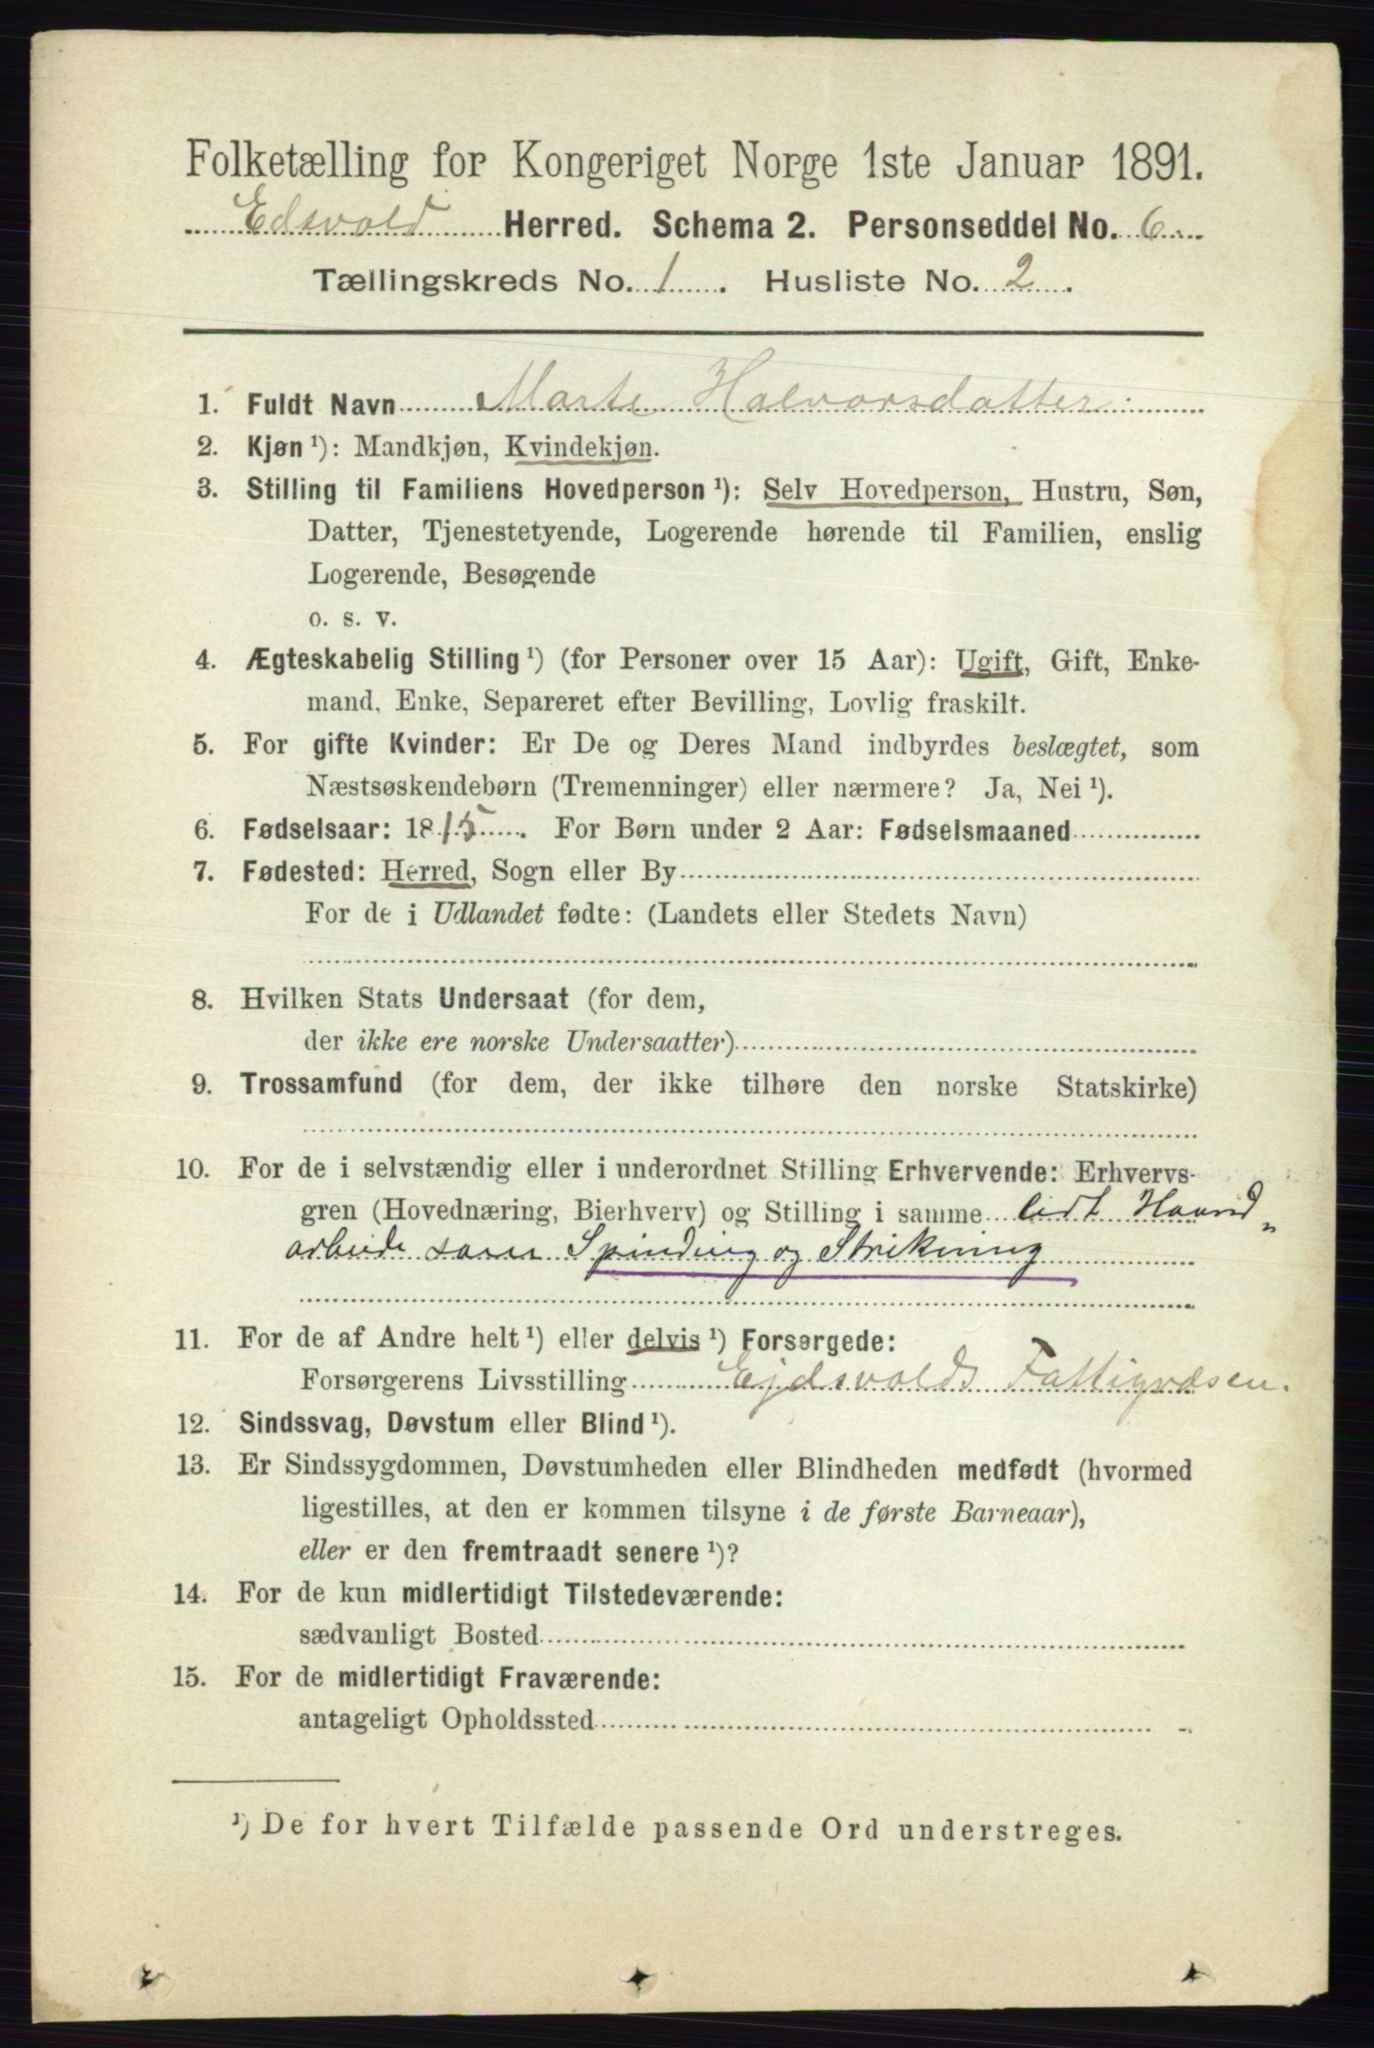 Folketælling for Kongeriget Norge 1ste Januar 1891.
Edsvold Herred. Schema 2. Personseddel No. 6
Tællingskreds No. 1. Husliste No. 2.
1. Fuldt Navn Marte Halvorsdatter
2. Kjøn ¹): Mandkjøn, Kvindekjøn.
3. Stilling til Familiens Hovedperson ¹): Selv Hovedperson, Hustru, Søn,
Datter, Tjenestetyende, Logerende hørende til Familien, enslig
Logerende, Besøgende
o. s. v.
4. Ægteskabelig Stilling ¹) (for Personer over 15 Aar): Ugift, Gift, Enke-
mand, Enke, Separeret efter Bevilling, Lovlig fraskilt.
5. For gifte Kvinder: Er De og Deres Mand indbyrdes beslægtet, som
Næstsøskendebørn (Tremenninger) eller nærmere? Ja, Nei ¹).
6. Fødselsaar: 1815. For Børn under 2 Aar: Fødselsmaaned
7. Fødested: Herred, Sogn eller By
For de i Udlandet fødte: (Landets eller Stedets Navn)
8. Hvilken Stats Undersaat (for dem,
der ikke ere norske Undersaatter)
9. Trossamfund (for dem, der ikke tilhøre den norske Statskirke)
10. For de i selvstændig eller i underordnet Stilling Erhvervende: Erhvervs-
gren (Hovednæring, Bierhverv) og Stilling i samme lidt Haand„
arbeide som Spinding og Strikning
11. For de af Andre helt ¹) eller delvis ¹) Forsørgede:
Forsørgerens Livsstilling Ejdsvolds Fattigvæsen.
12. Sindssvag, Døvstum eller Blind ¹).
13. Er Sindssygdommen, Døvstumheden eller Blindheden medfødt (hvormed
ligestilles, at den er kommen tilsyne i de første Barneaar),
eller er den fremtraadt senere ¹)?
14. For de kun midlertidigt Tilstedeværende:
sædvanligt Bosted
15. For de midlertidigt Fraværende:
antageligt Opholdssted
¹) De for hvert Tilfælde passende Ord understreges.